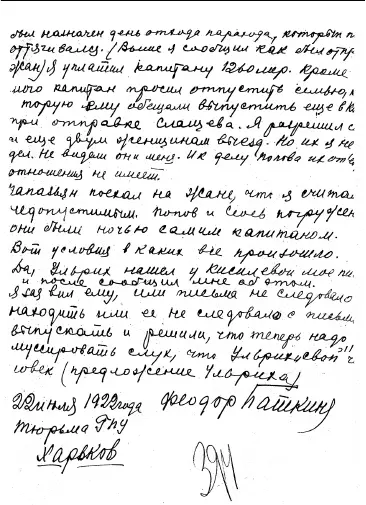 был назначен день отхода парахода, который п
оттягивалсь. (Выше я сообщил как был отпр
Жан) я уплатил капитану 120 лир. Кроме
ного капитан просил отпустить семью, к
торую ему обещали выпустить еще в К
при отправке Слащева. Я разрешил с
и еще двум женщинам выезд. Но их я не
дел. Не видали они меня. И к делу попова их от
отношения не имеет.
Чапавьян поехал на Жане, что я считал
недопустимым. Попов и
они были ночью самим капитаном.
Вот условия в каких все произошло.
Да, Ульрих нашел у Киселевой мое пи
и после сообщил мне об этом.
Я заявил ему, или письма не следовало
находить или ее не следовало с письм
выпускать и решили, что теперь надо
муссировать слух, что Ульрих "свой ч
ловек" (предложение Ульриха)
22 июля 1922 года Феодор Баткин
Тюрьма Гпу
Харьков
394